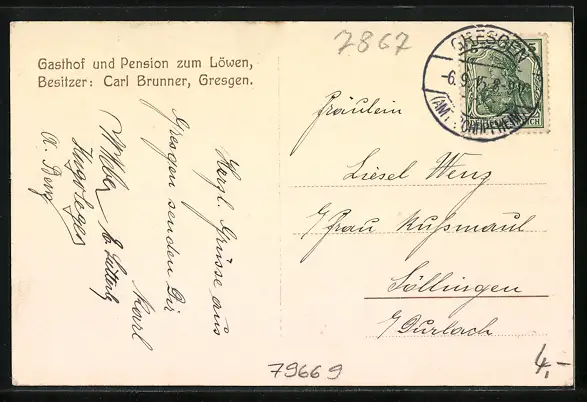 Gasthof und Pension zum Löwen,
Besitzer: Carl Brunner, Gresgen.
7867
GRESGEN
-6.9.15.8-9V.
(AMT SCHOPFHEIM)
Fräulein
Liesel Wenz
b/Frau Kußmaul
Söllingen
b/Durlach
Herzl. Grüsse aus
Gresgen senden Dir
Karl
A. Benz
79669
4,-